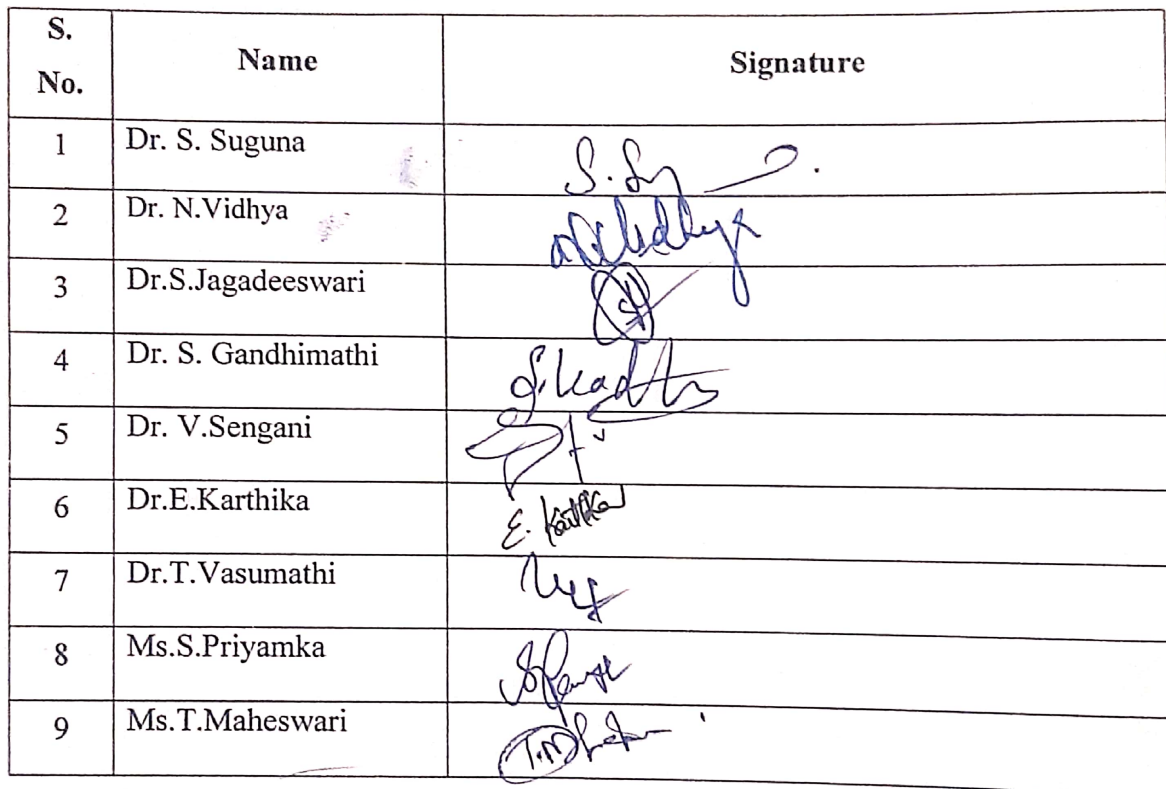 S. No. Name Signature
1 Dr. S. Suguna
2 Dr. N.Vidhya
3 Dr.S.Jagadeeswari
4 Dr. S. Gandhimathi
5 Dr. V.Sengani
6 Dr.E.Karthika E. Karthika
7 Dr.T.Vasumathi
8 Ms.S.Priyamka
9 Ms.T.Maheswari